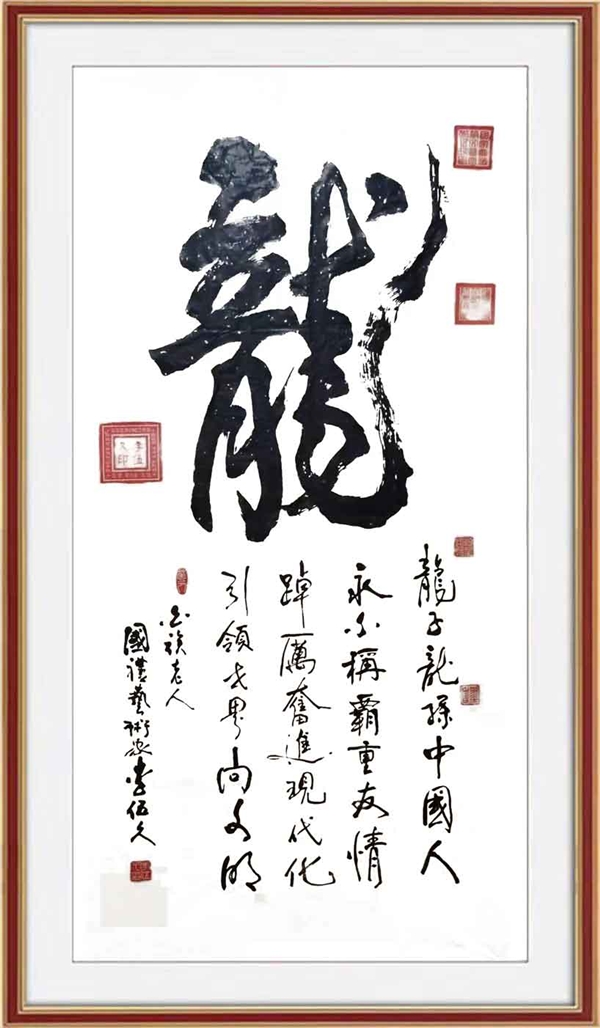 龍
龍子龍孫中國人
永不稱霸重友情
踔厲奮進現代化
引領世界向文明
老人
國禮藝術家李伍久
李伍
久印